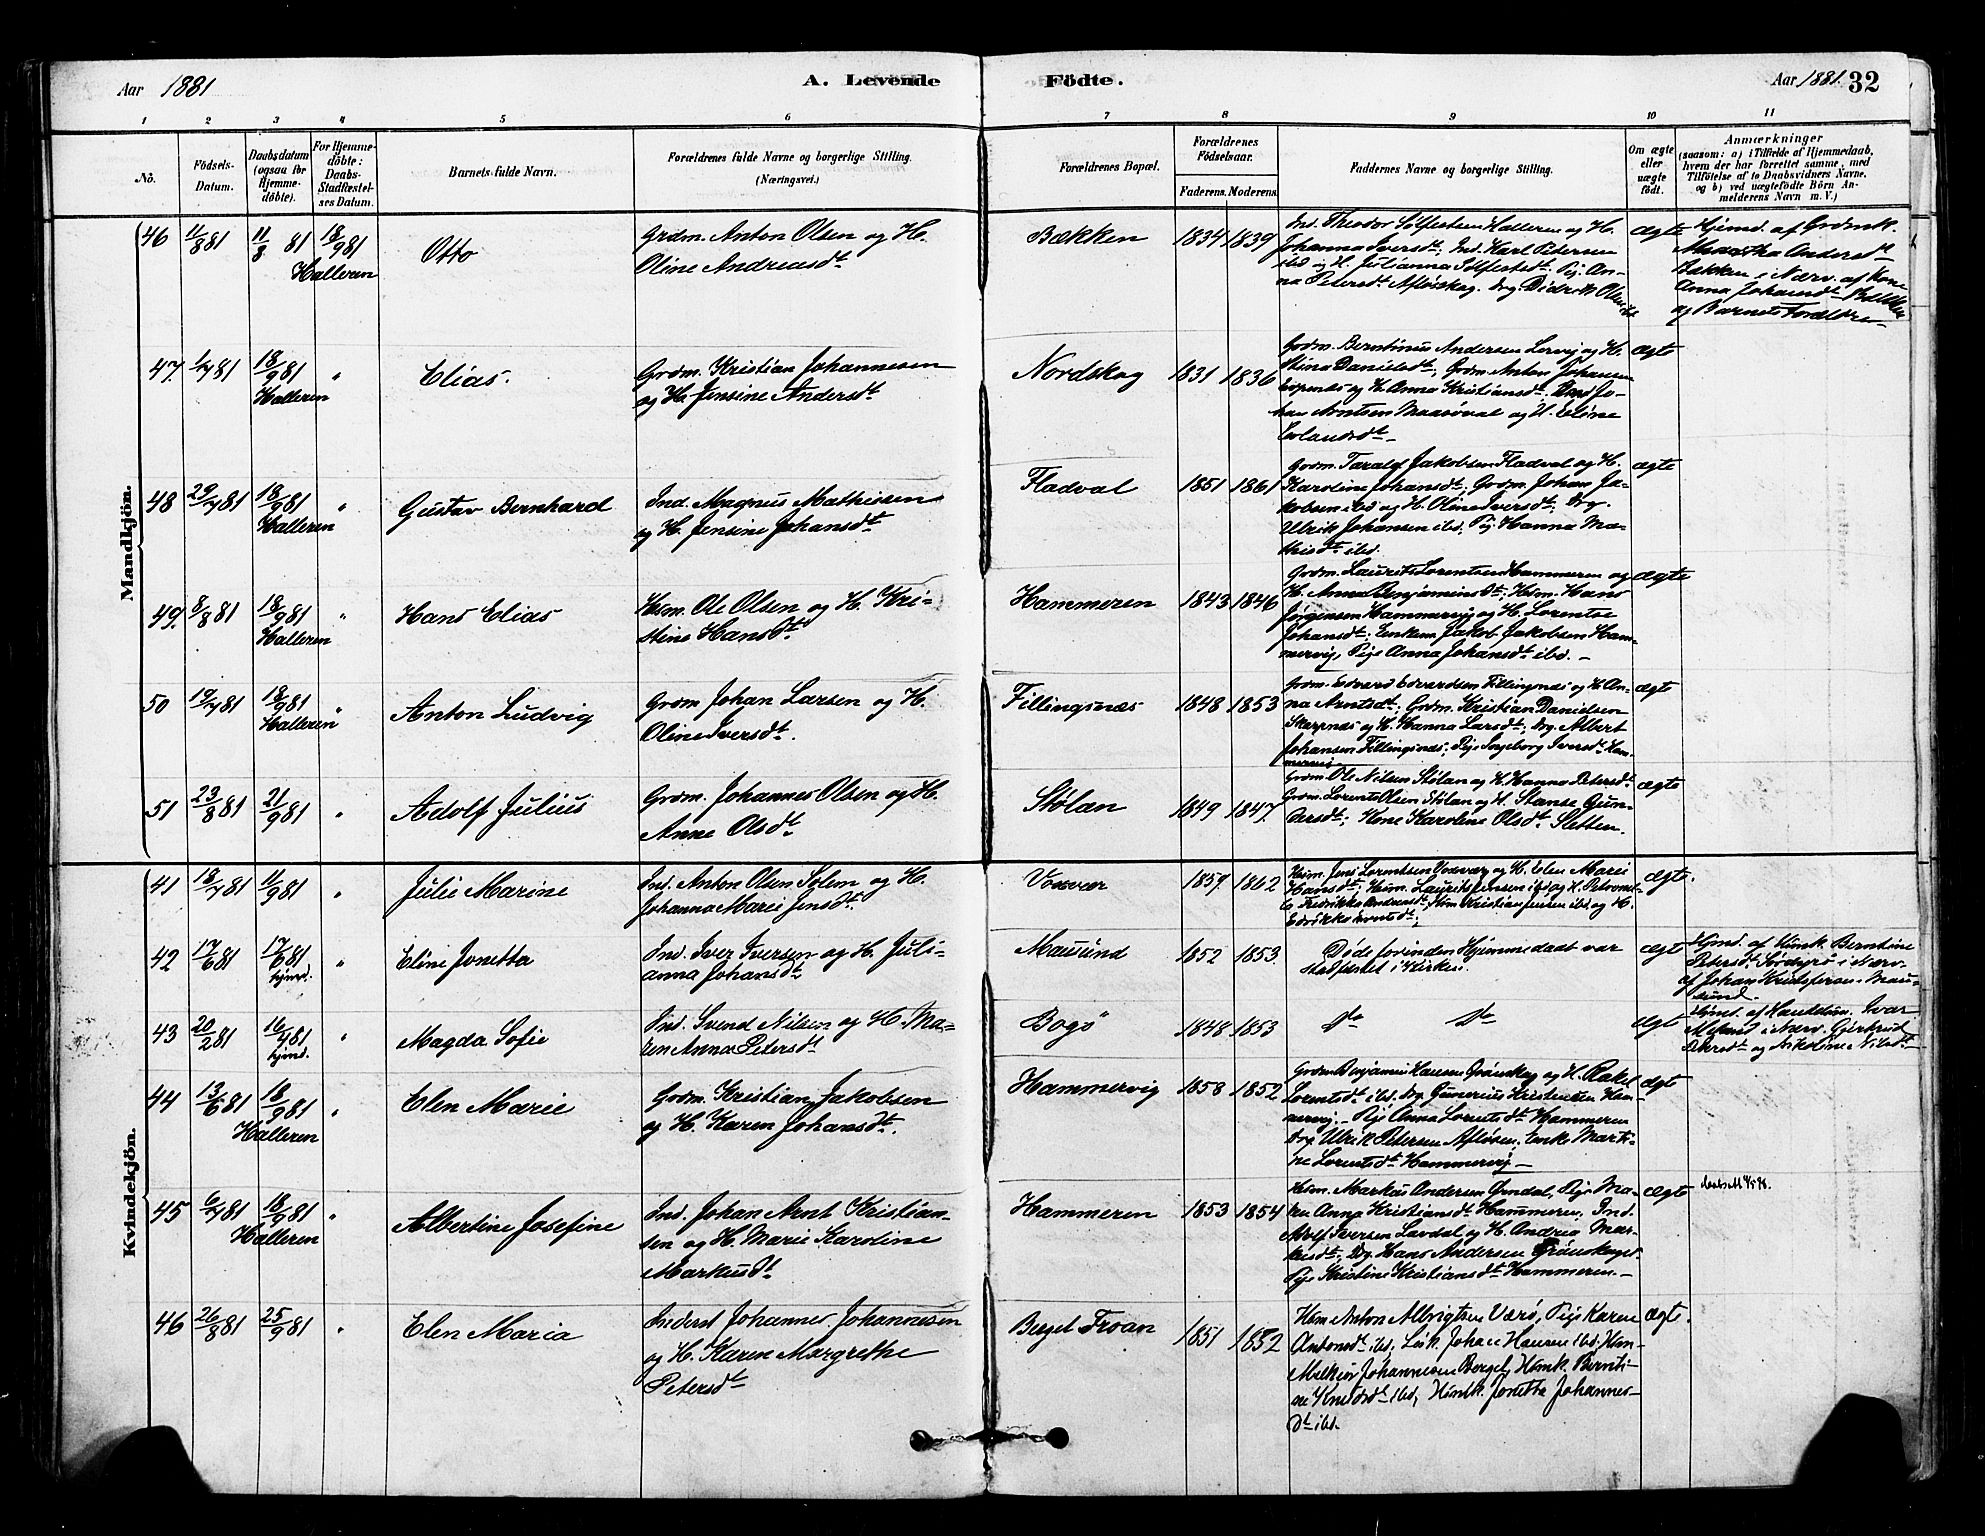 Aar 1881
A. Levende
Födte.
Aar 1881.
32
1 2 3 4 5 6 7 8 9 10 11
No.
Födsels-
Datum.
Daabsdatum
(ogsaa for
Hjemme-
döbte).
For Hjemme-
döbte:
Daabs-
Stadfæstel-
ses Datum.
Barnets fulde Navn.
Forældrenes fulde Navne og borgerlige Stilling.
(Næringsvei.)
Forældrenes Bopæl.
Forældrenes
Födselsaar.
Faderens. Moderens.
Faddernes Navne og borgerlige Stilling.
Om ægte
eller
uægte
födt.
Anmærkninger
(saasom: a) i Tilfælde af Hjemmedaab,
hvem der har forrettet samme, med
Tilföielse af to Daabsvidners Navne,
og b) ved uægtefödte Börn An-
melderens Navn m. V.)
Mandkjön.
46 11/8 81 11/8 81 18/9 81
Halleren
Otto
Grdm. Anton Olsen og H.
Oline Andreasdt
Bækken
1834 1839
Ind. Theodor Sølfestsen Halleren og H.
Johanna Iversdt; Ind. Karl Pedersen
ibd og H. Julianna Sølfestsdt; Pig. An-
na Petersdt Afløskag. Drg. Didrik Olsen ibd
ægte
Hjemd. af Grdmk.
Andersdt
Bækken i Nærv. af Kone
Anna Johansdt Bækken
og Barnets Forældre
47. 1/7 81 18/9 81 "
Halleren
Elias.
Grdm. Kristian Johannesen
og H. Jensine Andersdt
Nordskag
1831 1836
Grdm. Berntinus Andersen Lervig og H.
Stina Danielsdt; Grdm. Anton Johansen
og H. Anna Kristiansdt. Jo-
han Arntsen Maasøval og H. Eline
Erlandsdt
ægte
48 29/7 81 18/9 81 "
Halleren
Gustav Bernhard
Ind. Magnus Mathisen
og H. Jensine Johansdt
Fladval
1851 1861
Grdm. Tarald Jakobsen Fladval og H.
Karoline Johansdt; Grdm. Johan Ja-
kobsen ibd og H. Oline Iversdt; Drg.
Ulrik Johansen ibd. Pig. Hanna Ma-
thisdt ibd.
ægte
49. 8/8 81 18/9 81 "
Halleren
Hans Elias
Husm. Ole Olsen og H. Kri-
stine Hansdt
Hammeren
1843 1846
Grdm. Laurits Lorentsen Hammeren og
H. Anna Benjaminsdt; Husm. Hans
Jørgensen Hammervig og H. Lorentse
Johansdt; Enkem. Jakob Jakobsen Ham-
mervig, Pige Anna Johansdt ibd.
ægte
50 19/7 81 18/9 81 "
Halleren
Anton Ludvig
Grdm Johan Larsen og H.
Oline Iversdt.
Fillingsnæs
1848 1853
Grdm. Edvard Edvardsen Fillingsnæs og H. An-
na Arntsdt. Grdm. Kristian Danielsen
Skarpnæs og H. Hanna Larsdt; Drg. Albert
Johansen Fillingsnæs; Pige Ingeborg Iversdt Ham-
mervig
ægte
51 23/8 81 21/9 81 "
Adolf Julius
Grdm. Johannes Olsen og H.
Anne Olsdt
Stølan
1849 1847.
Grdm. Ole Nilsen Stølan og H. Hanna Petersdt.
Grdm. Lorents Olsen Stølan og H. Stanse Gun-
dersdt; Kone Karoline Olsdt Sletten.
ægte
Kvindekjön.
41 18/7 81 11/9 81 "
Julie Marine
Ind. Anton Olsen Solem og H.
Johanna Marie Jensdt.
Vosvær
1857 1862
Husm. Jens Lorentsen Vosvær og H. Elen Marie
Hansdt; Husm. Laurits Jensen ibd og H. Petronel-
la Fredrikke Andreasdt; Husm Kristian Jensen ibd og H.
ægte.
42 17/6 81 17/6 81 "
hjmd.
Eline Jonetta
Ind. Iver Iversen og H. Juli-
anna Johansdt
Mausund
1852 1853.
Døde forinden Hjemmedaab var
stadfæstet i Kirken.
ægte
Hjmd. af Husmk. Berntine
Petersdt i Nærv.
af Johan Kristofersen Mau-
sund.
43 20/2 81 16/4 81 "
hjmd.
Magda Sofie
Ind. Svend Nilsen og H. Ma-
ren Anna Petersdt
Bogø
1848 1853
Do Do
ægte
Hjmd. af Ivar
i Nærv. Gjertrud
Petersdt og Nikoline Nilsdt
44 13/6 81 18/9 81 "
Halleren
Elen Marie
Grdm. Kristian Jakobsen
og H. Karen Johansdt.
Hammervig
1858 1852
Grdm Benjamin Hansen Grønskag og H. Rakel
Lorentsdt ibd. Drg Gunerius Kristensen Ham-
mervig. Pige Anna Lorentsdt Hammeren
Drg. Ulrik Petersen Afløsen, Enke Marti-
ne Lorentsdt Hammervig
ægte
45 6/7 81 18/9 81 "
Halleren
Albertine Josefine
Ind. Johan Arnt Kristian-
sen og H. Marie Karoline
Markusdt
Hammeren
1853 1854
Husm. Markus Andersen Ørndal, Pige Ma-
ren Anna Kristiansdt Hammeren, Ind.
Adolf Iversen Lavdal og H. Andrea Mar-
kusdt; Drg. Hans Andersen Grønskaget
Pige Kristine Kristiansdt Hammeren
ægte
46 26/8 81 25/9 81 "
Elen Maria
Inderst Johannes Johannesen
og H. Karen Margrethe
Petersdt
Berget Froan
1851 1852
Hsm Anton Albrigtsen Værø, Pige Karen
Antonsdt ibd, Johan Hansen ibd. Hsm
Melkior Johannesen Berget, Hsmk. Bernti-
ne Knudsdt ibd, Hsmk. Jonetta Johannes-
dt ibd.
ægte.